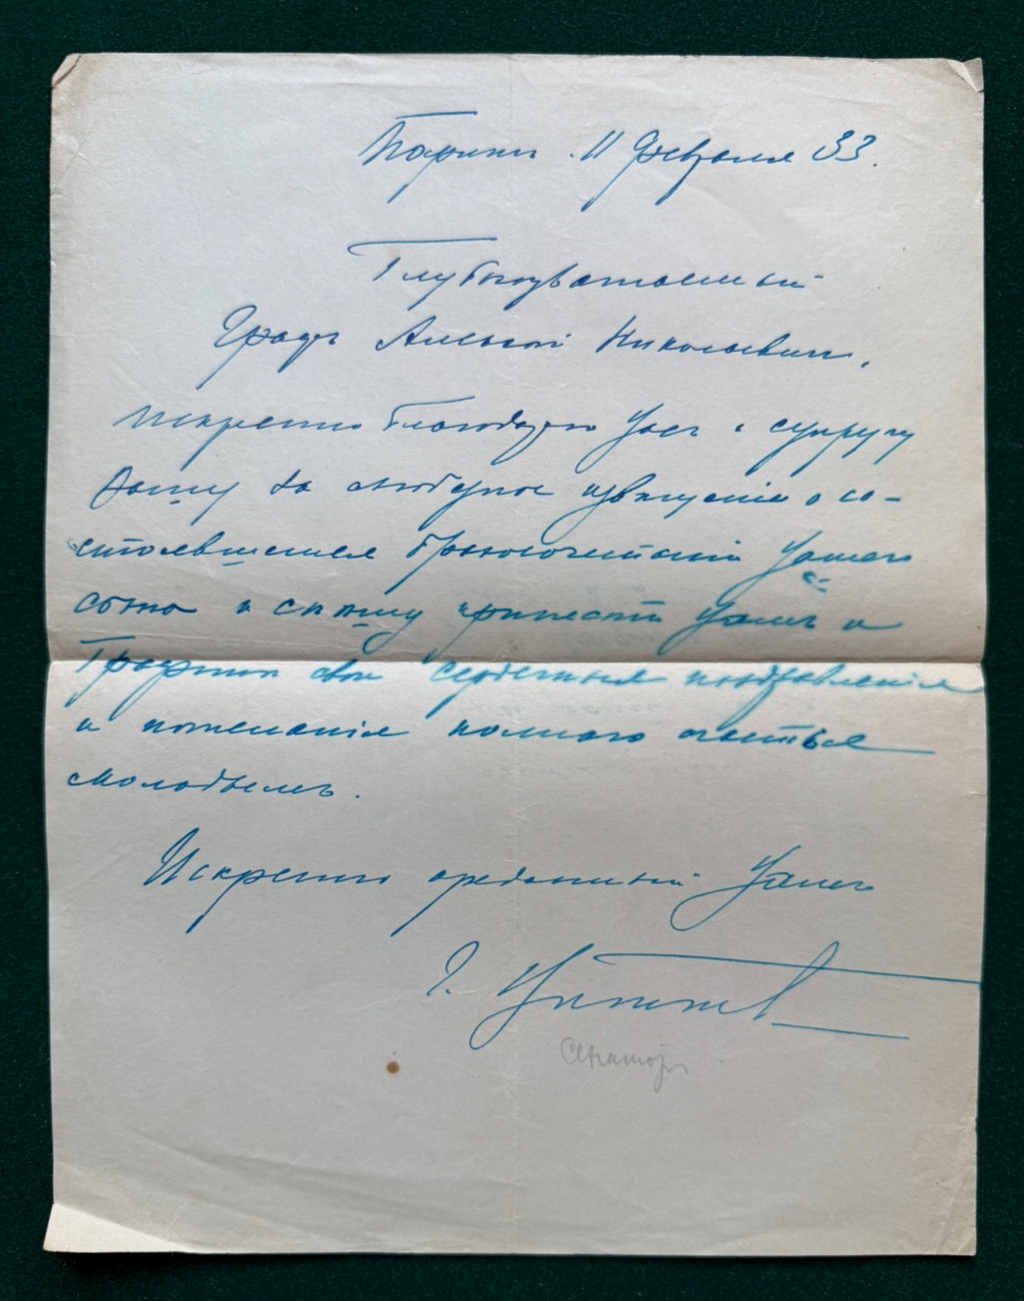 Парижъ 11 Февраля 33.
Глубокоуважаемый
Графъ Алексѣй Николаевичъ,
искренно благодарю Васъ и супругу
Вашу за любезное извѣщеніе о со-
стоявшемся бракосочетаніи Вашего
сына и спѣшу принести Вамъ и
Графинѣ свои сердечныя поздравленія
и пожеланія полнаго счастья
молодымъ.
Искренно преданный Вамъ
Сенаторъ